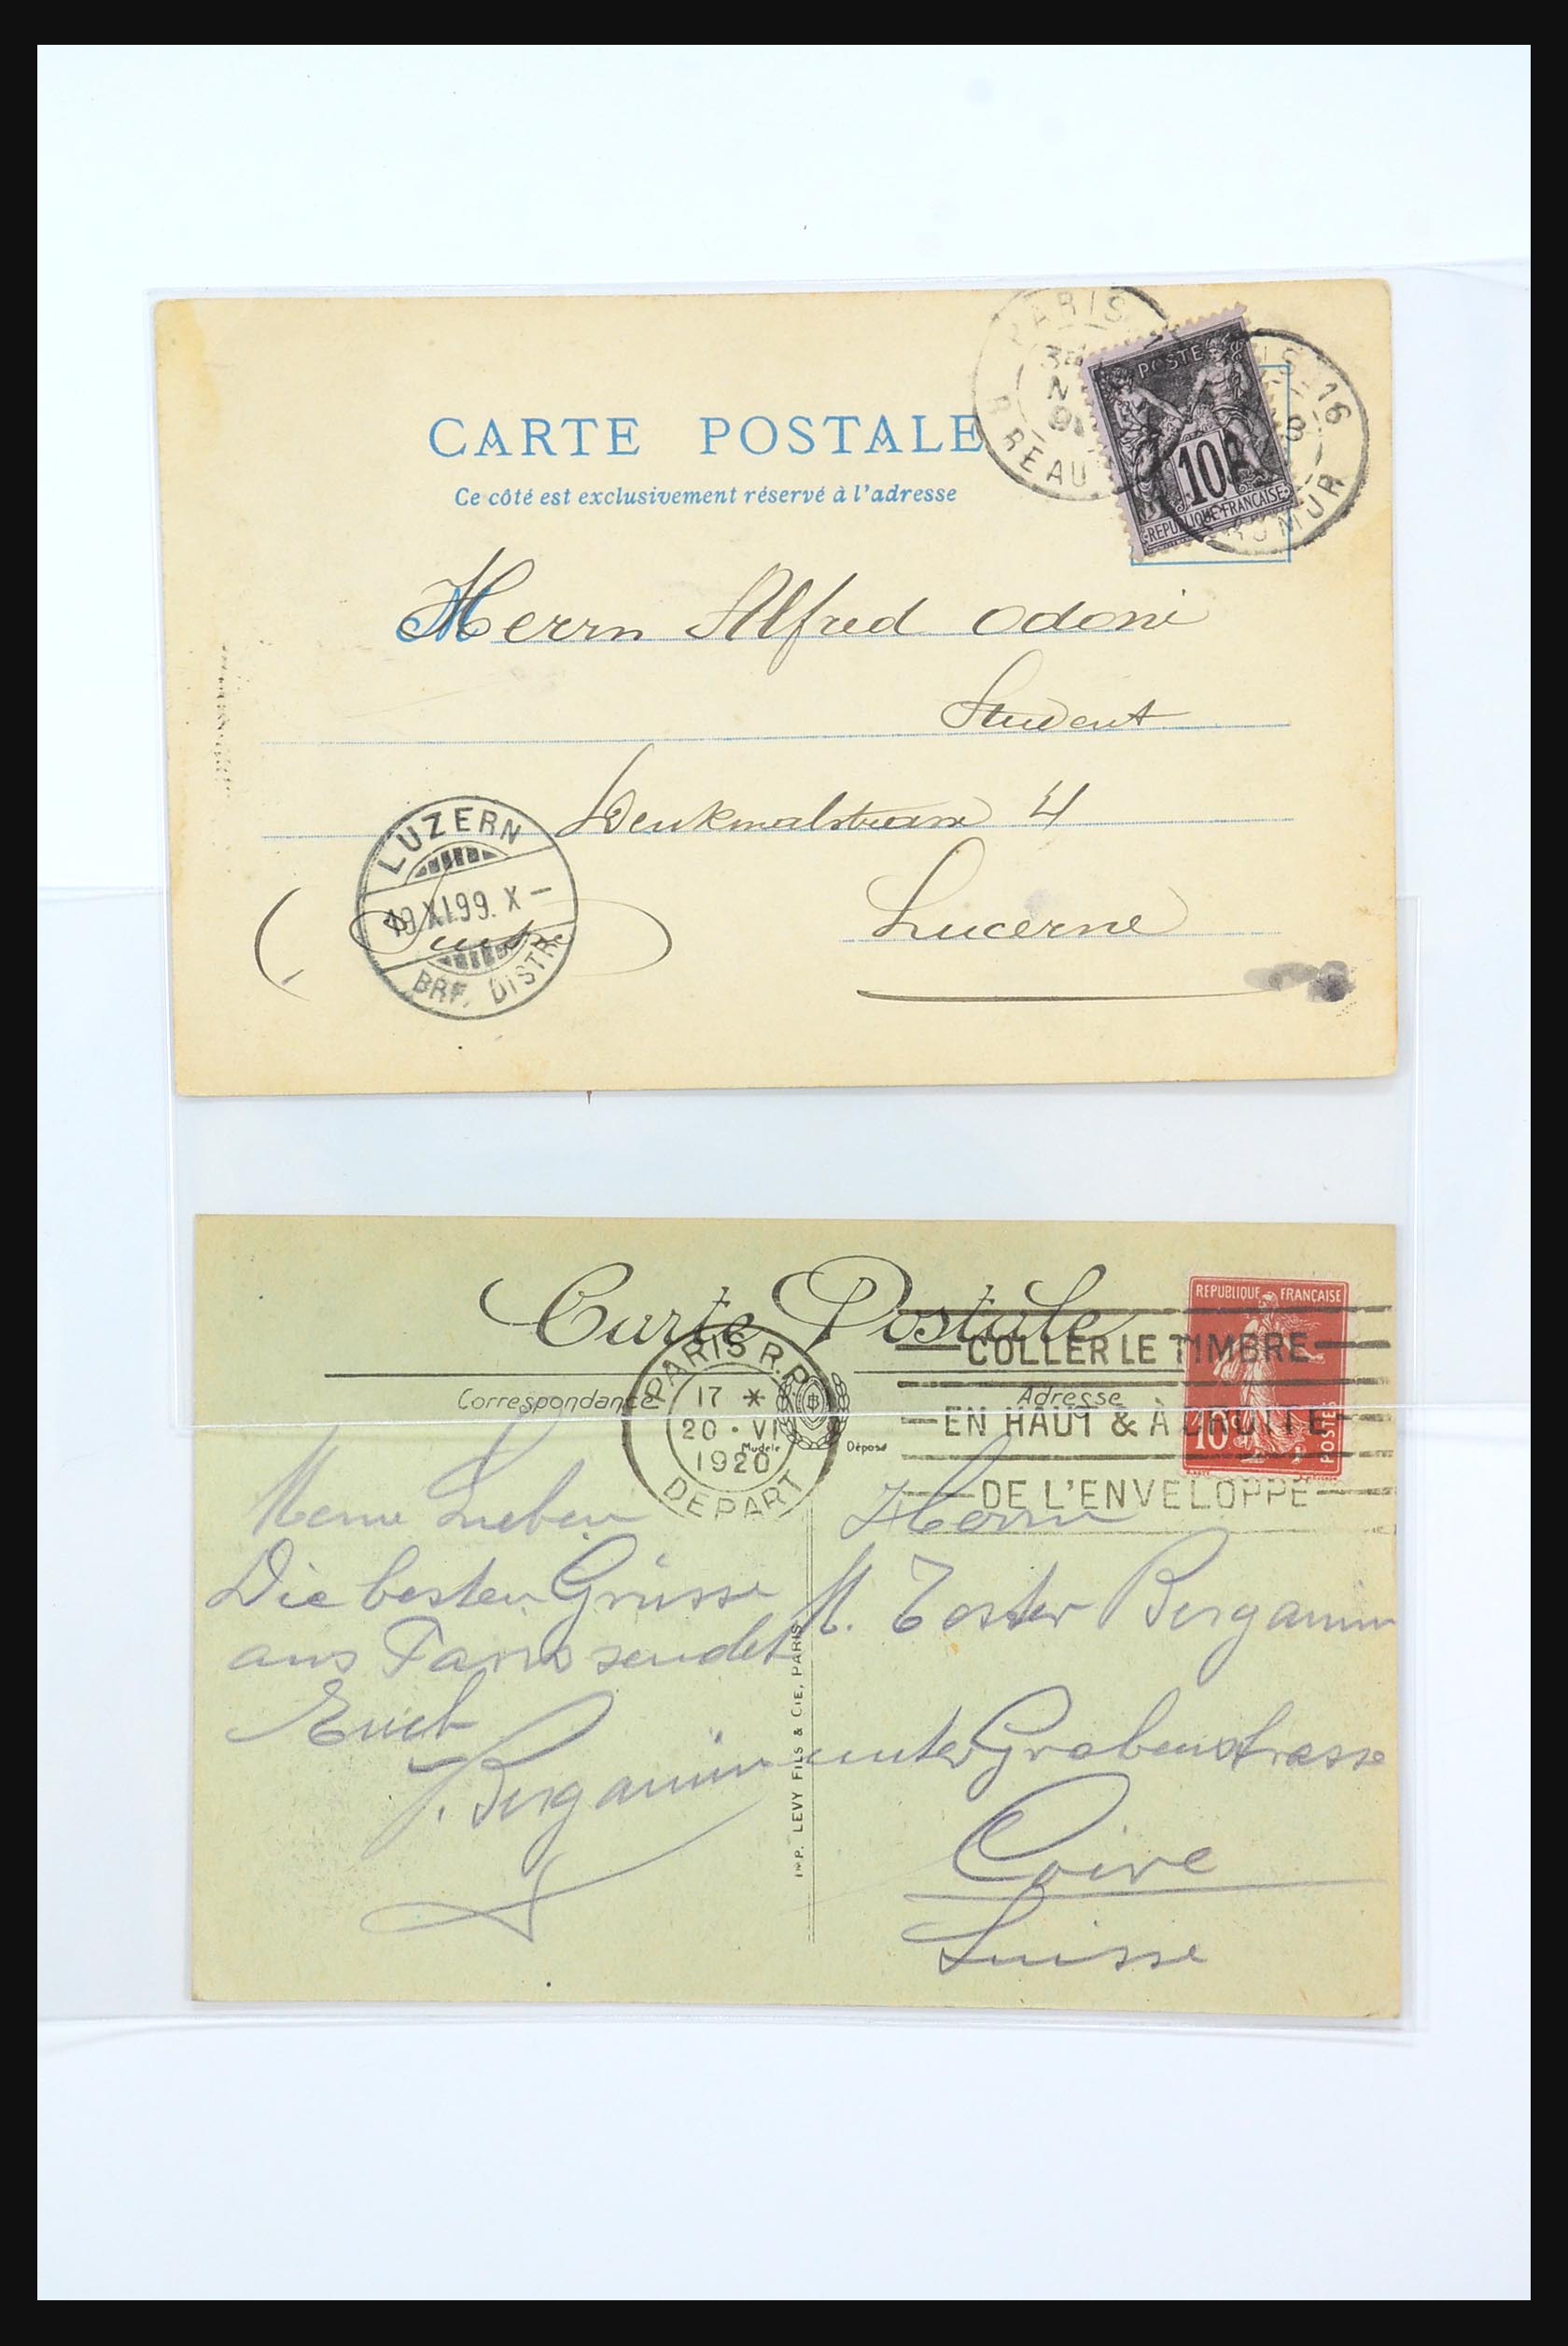 PARIS
POSTES
16
CARTE POSTALE
REAU
10
Ce côté est exclusivement réservé à l'adresse
REPUBLIQUE FRANÇAISE
Herrn Alfred Odoni
Student
Denkmalstrasse 4
LUZERN
19.XI.99. X –
BRF. DISTR.
Lucerne
Carte Postale
REPUBLIQUE FRANÇAISE
PARIS R.P.
COLLER LE TIMBRE
Correspondance
Adresse
17 *
20 • VI
1920
DEPART
EN HAUT & À DROITE
10 POSTES
Modèle Déposé
DE L'ENVELOPPE
Meine Lieben
Die besten Grüsse
aus Paris sendet
Erich
J. Bergamin
IMP. LEVY FILS & CIE, PARIS
Herrn
M. Bergamin
unter Grabenstrasse
Coire
Suisse